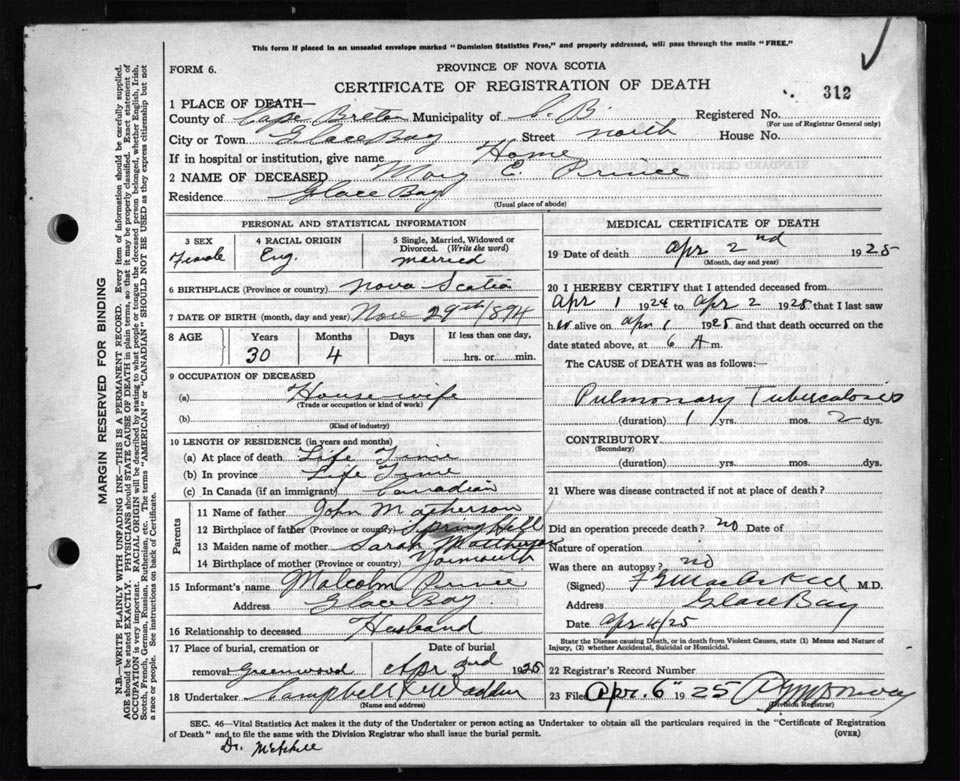 This form if placed in an unsealed envelope marked "Dominion Statistics Free," and properly addressed, will pass through the mails "FREE."
FORM 6.
PROVINCE OF NOVA SCOTIA
CERTIFICATE OF REGISTRATION OF DEATH
312
1 PLACE OF DEATH—
County of Cape Breton Municipality of C. B. Registered No.
(For use of Registrar General only)
City or Town Glace Bay Street North House No.
If in hospital or institution, give name Home
2 NAME OF DECEASED Mary E. Prince
Residence Glace Bay
(Usual place of abode)
PERSONAL AND STATISTICAL INFORMATION
3 SEX Female
4 RACIAL ORIGIN Eng.
5 Single, Married, Widowed or Divorced. (Write the word) married
6 BIRTHPLACE (Province or country) Nova Scotia
7 DATE OF BIRTH (month, day and year) Nov 29th 1894
8 AGE Years Months Days If less than one day,
30 4 hrs. or min.
9 OCCUPATION OF DECEASED
(a) House wife
(Trade or occupation or kind of work)
(b)
(Kind of industry)
10 LENGTH OF RESIDENCE (in years and months)
(a) At place of death Life Time
(b) In province Life Time
(c) In Canada (if an immigrant) Canadian
Parents
11 Name of father John Macpherson
12 Birthplace of father (Province or country) Spring Hill
13 Maiden name of mother Sarah
14 Birthplace of mother (Province or country) Yarmouth
15 Informant's name Malcolm Prince
Address Glace Bay
16 Relationship to deceased Husband
17 Place of burial, cremation or removal Greenwood
Date of burial Apr 3rd 1925
18 Undertaker Campbell &
(Name and address)
MEDICAL CERTIFICATE OF DEATH
19 Date of death Apr 2nd 1925
(Month, day and year)
20 I HEREBY CERTIFY that I attended deceased from
Apr 1 1924 to Apr 2 1925 that I last saw
h alive on Apr 1 1925 and that death occurred on the
date stated above, at 6 A m.
The CAUSE OF DEATH was as follows:—
Pulmonary Tuberculosis
(duration) 1 yrs. mos. 2 dys.
CONTRIBUTORY
(Secondary)
(duration) yrs. mos. dys.
21 Where was disease contracted if not at place of death?
Did an operation precede death? no Date of
Nature of operation
Was there an autopsy? no
(Signed) M.D.
Address Glace Bay
Date Apr 4/25
State the Disease causing Death, or in death from Violent Causes, state (1) Means and Nature of
Injury, (2) whether Accidental, Suicidal or Homicidal.
22 Registrar's Record Number
23 Filed Apr. 6" 1925
(Division Registrar)
SEC. 46—Vital Statistics Act makes it the duty of the Undertaker or person acting as Undertaker to obtain all the particulars required in the "Certificate of Registration
of Death" and to file the same with the Division Registrar who shall issue the burial permit.
(OVER)
Dr.
MARGIN RESERVED FOR BINDING
N.B.—WRITE PLAINLY WITH UNFADING INK—THIS IS A PERMANENT RECORD. Every item of information should be carefully supplied.
AGE should be stated EXACTLY. PHYSICIANS should STATE CAUSE OF DEATH in plain terms, so that it may be properly classified. Exact statement of
OCCUPATION is very important. RACIAL ORIGIN will be described by stating to what people or tongue the deceased person belonged, whether English, Irish,
Scotch, French, German, Russian, Ruthenian, etc. The terms "AMERICAN" or "CANADIAN" SHOULD NOT BE USED as they express citizenship but not
a race or people. See instructions on back of Certificate.